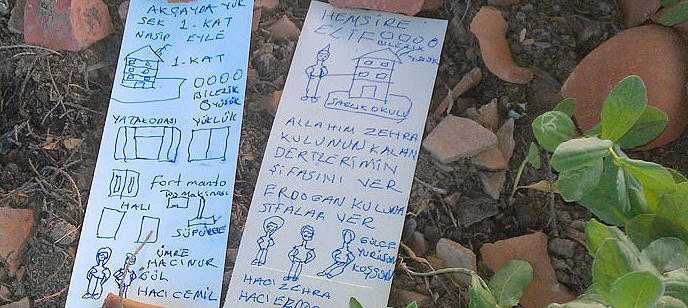 AKÇAYDA YÜK
SEK 1.KAT
NASİP EYLE
1-KAT
BİLEZİK
YÜZÜK
YATAKODASI YÜKLÜK
fort manto
HALI
SÜPÜRGE
ÜMRE
HACI NUR
GÜL
HACI CEMİL
HEMŞİRE
ELİF
BİLEZİK
YÜZÜK
SAĞLIKOKULU
ALLAHIM ZEHRA
KULUNUN KALAN
DERTLERİMİN
ŞİFASINI VER
ERDOĞAN KULUNA
ŞİFALAR VER
GÜLCE
YÜRÜSÜN
KOŞSUN
HACI ZEHRA
HACI